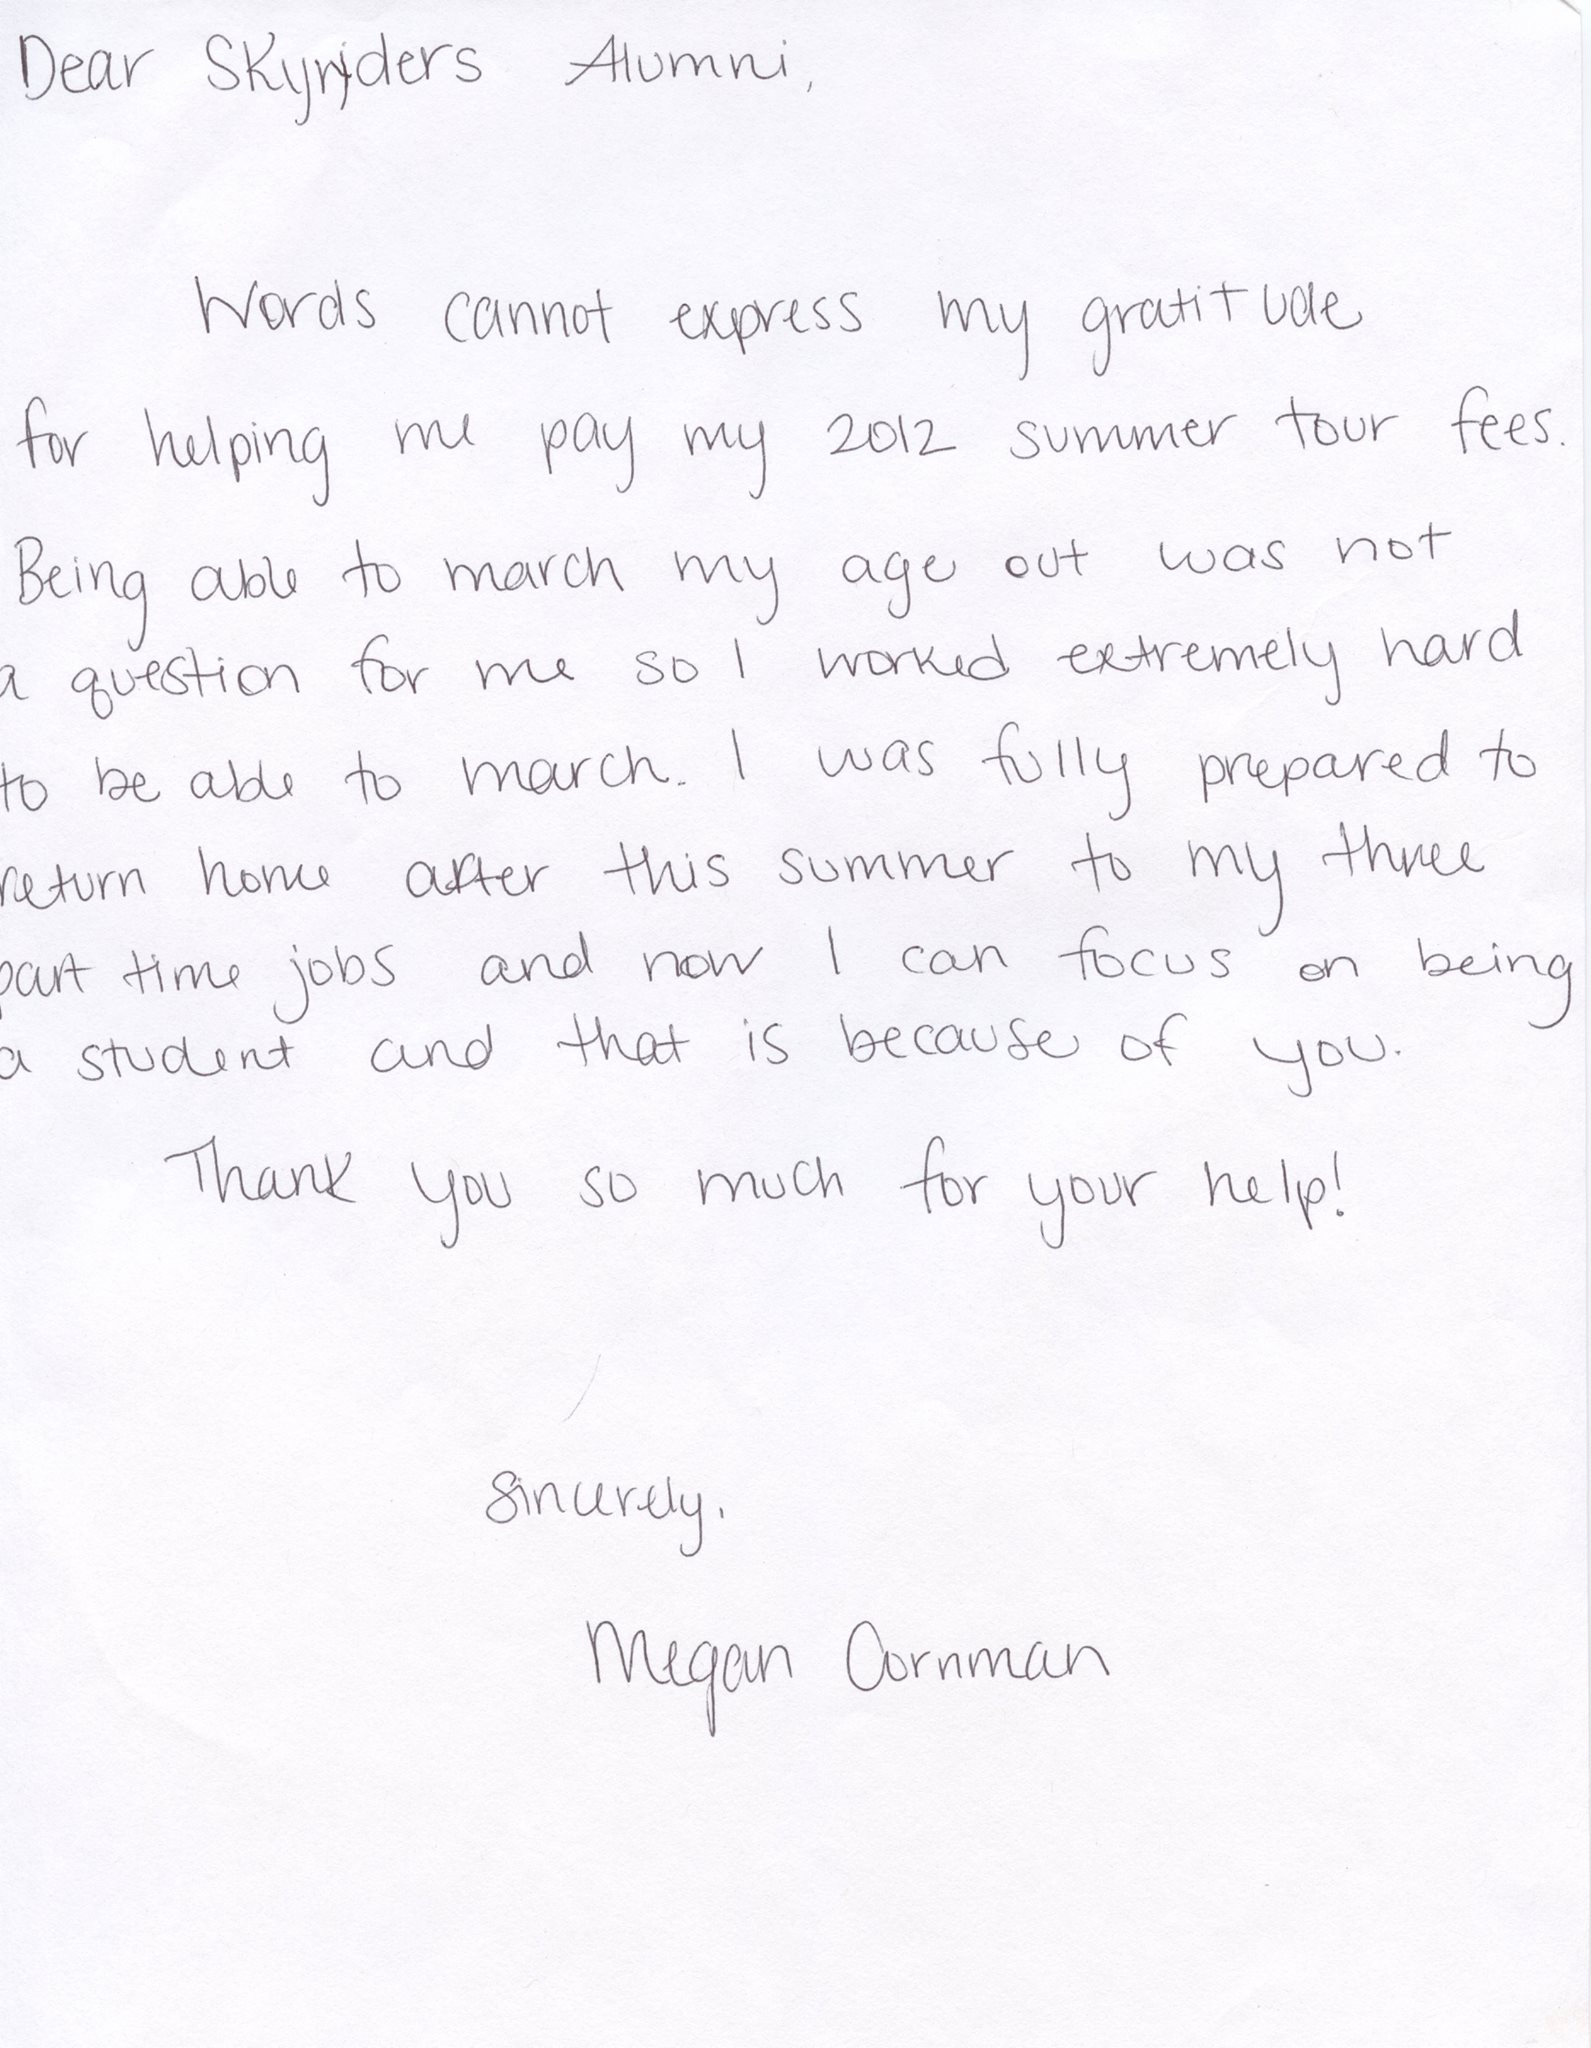 Dear Skyriders Alumni,
Words cannot express my gratitude
for helping me pay my 2012 summer tour fees.
Being able to march my age out was not
a question for me so I worked extremely hard
to be able to march. I was fully prepared to
return home after this summer to my three
part time jobs and now I can focus on being
a student and that is because of you.
Thank you so much for your help!
Sincerely,
Megan Cornman